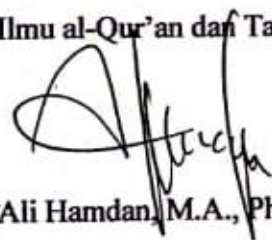 Ilmu al-Qur'an dan Ta
Ali Hamdan, M.A., Ph